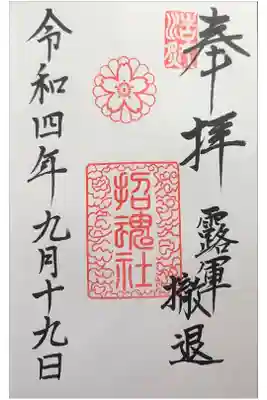 奉拝
露軍撤退
招魂社
令和四年九月十九日